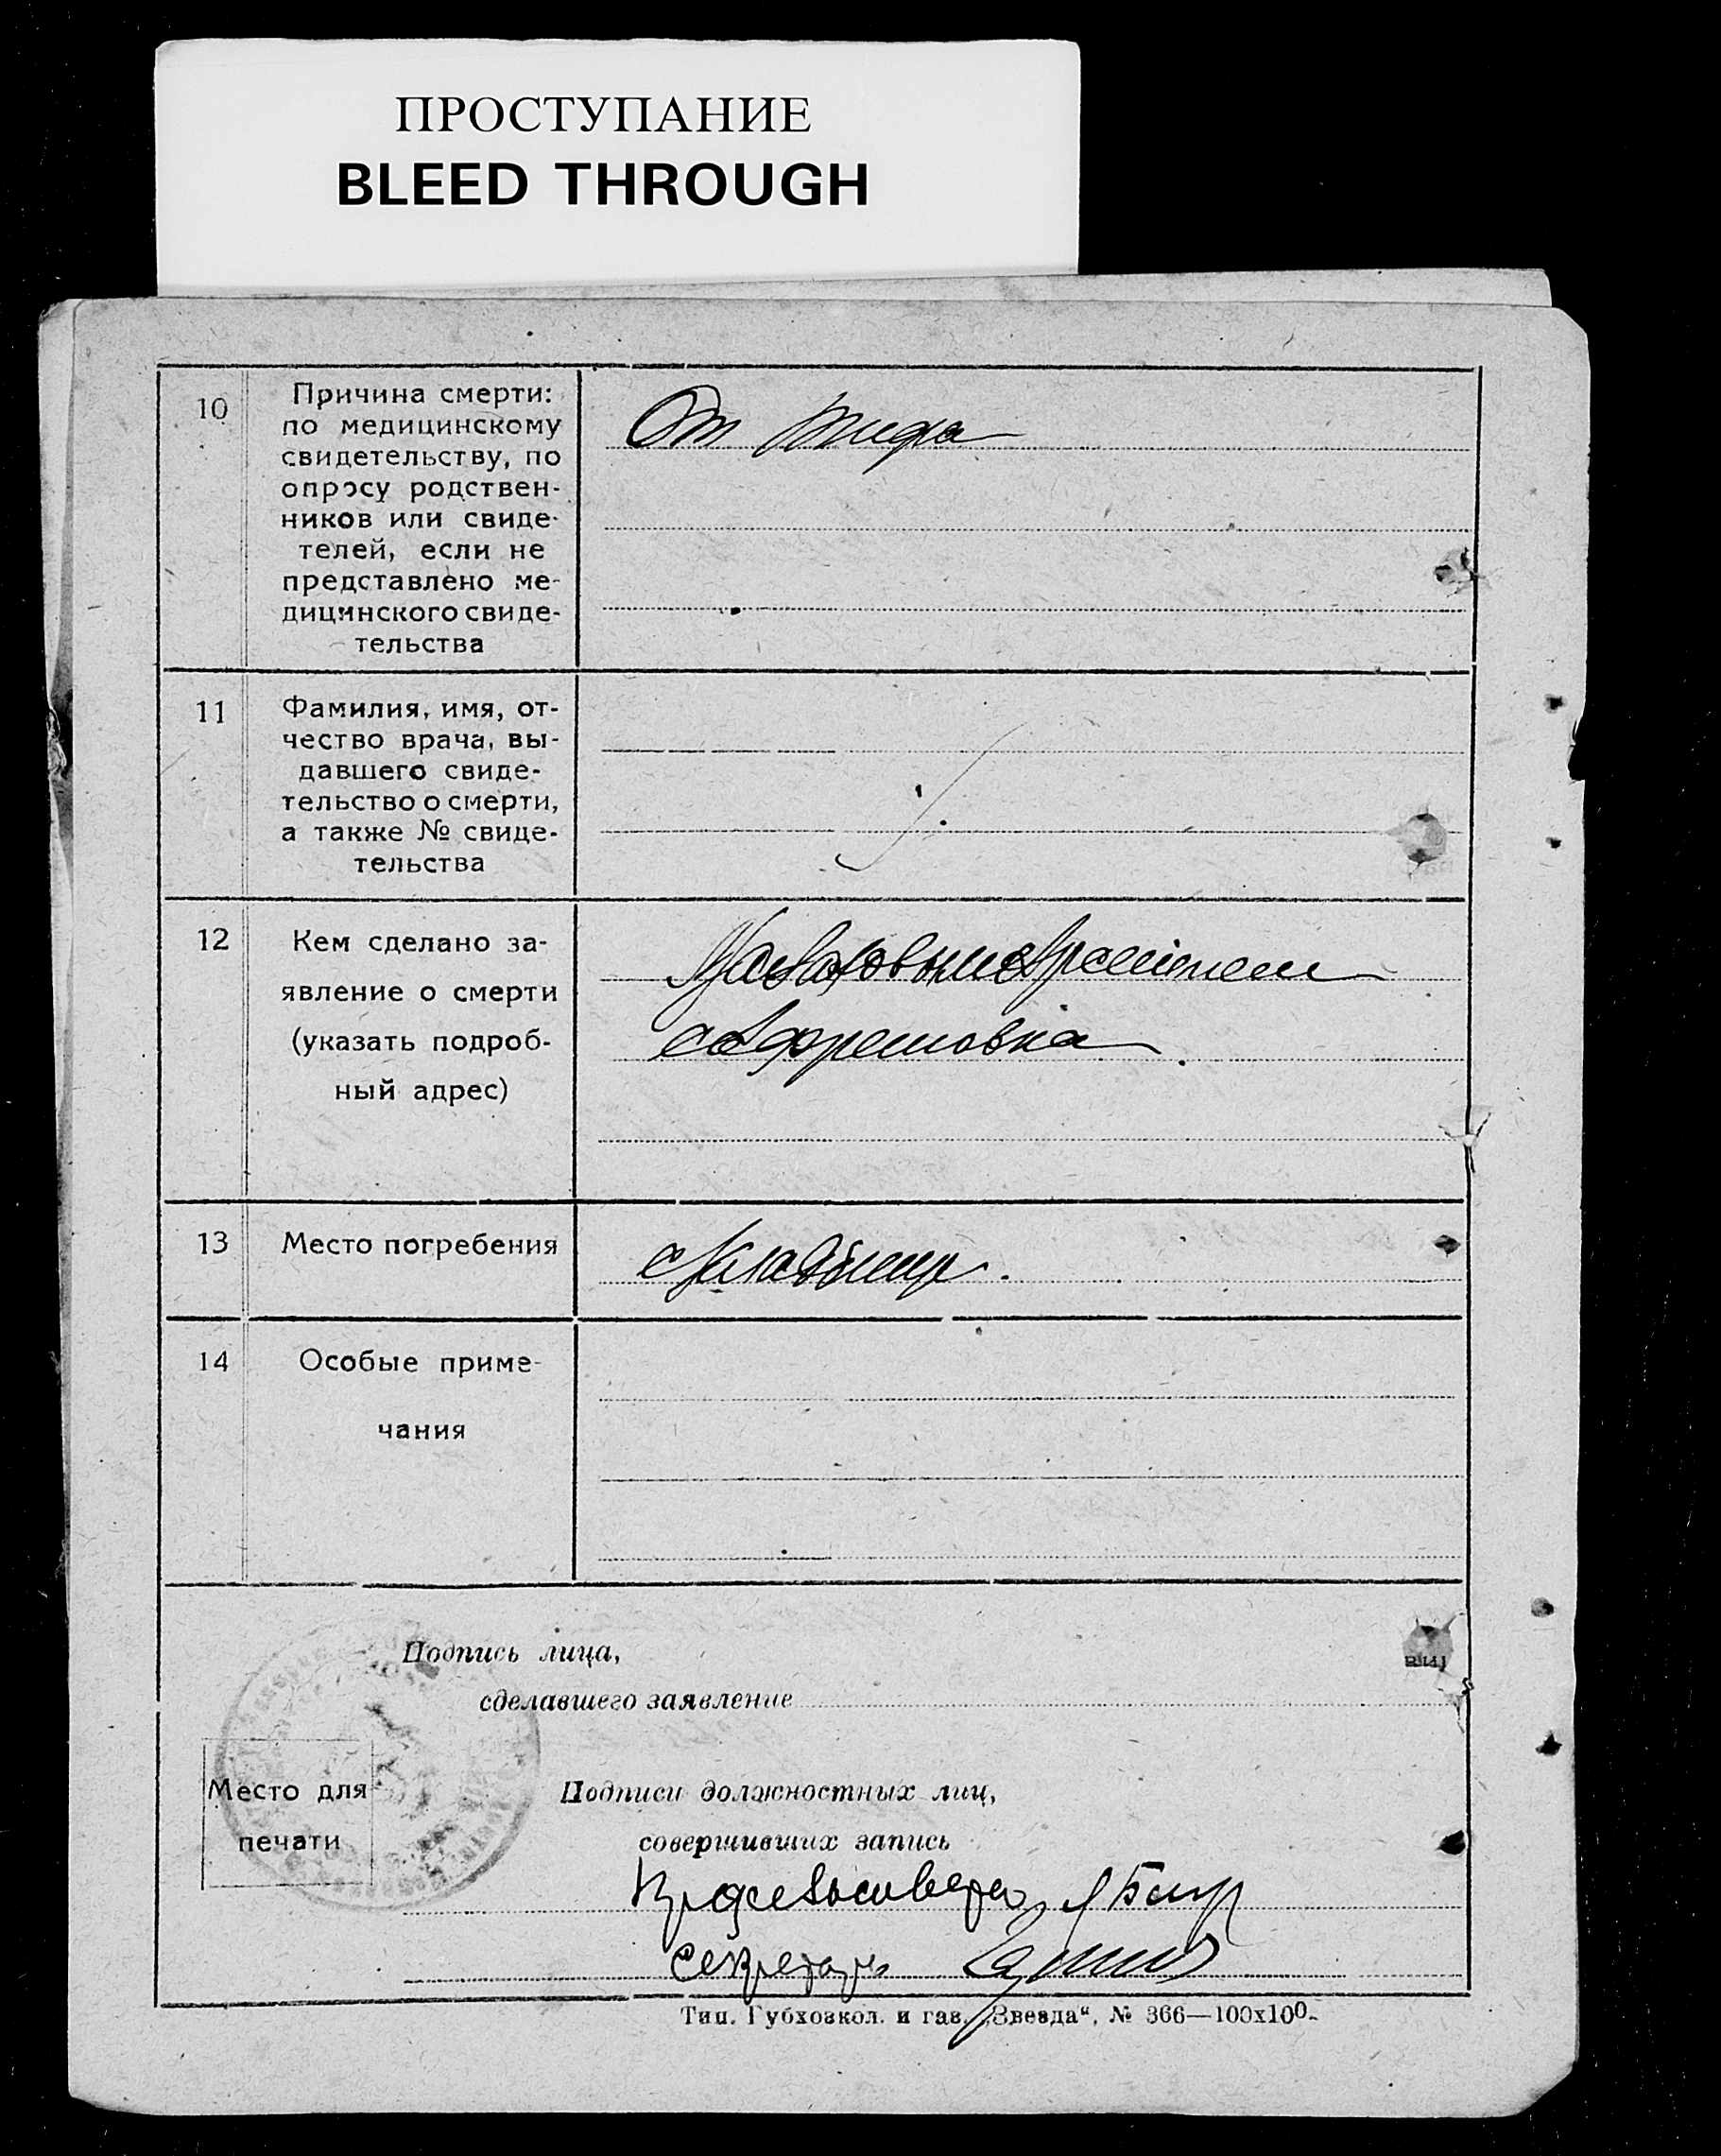 ПРОСТУПАНИЕ
BLEED THROUGH
10
Причина смерти:
по медицинскому
свидетельству, по
опросу родствен-
ников или свиде-
телей, если не
представлено ме-
дицинского свиде-
тельства
От тифа
11
Фамилия, имя, от-
чество врача, вы-
давшего свиде-
тельство о смерти,
а также № свиде-
тельства
12
Кем сделано за-
явление о смерти
(указать подроб-
ный адрес)
13
Место погребения
кладбище.
14
Особые приме-
чания
Подпись лица,
сделавшего заявление
Место для
печати
Подписи должностных лиц,
совершивших запись
Секретарь
Тип. Губхозкол. и газ. „Звезда“, № 366—100х100.